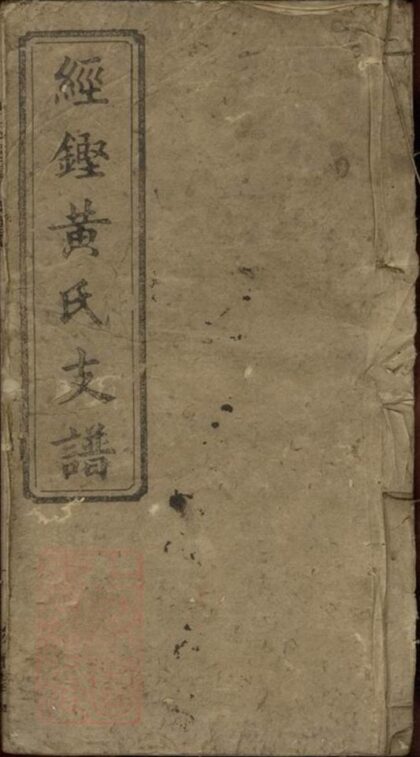 經鏗黃氏支譜